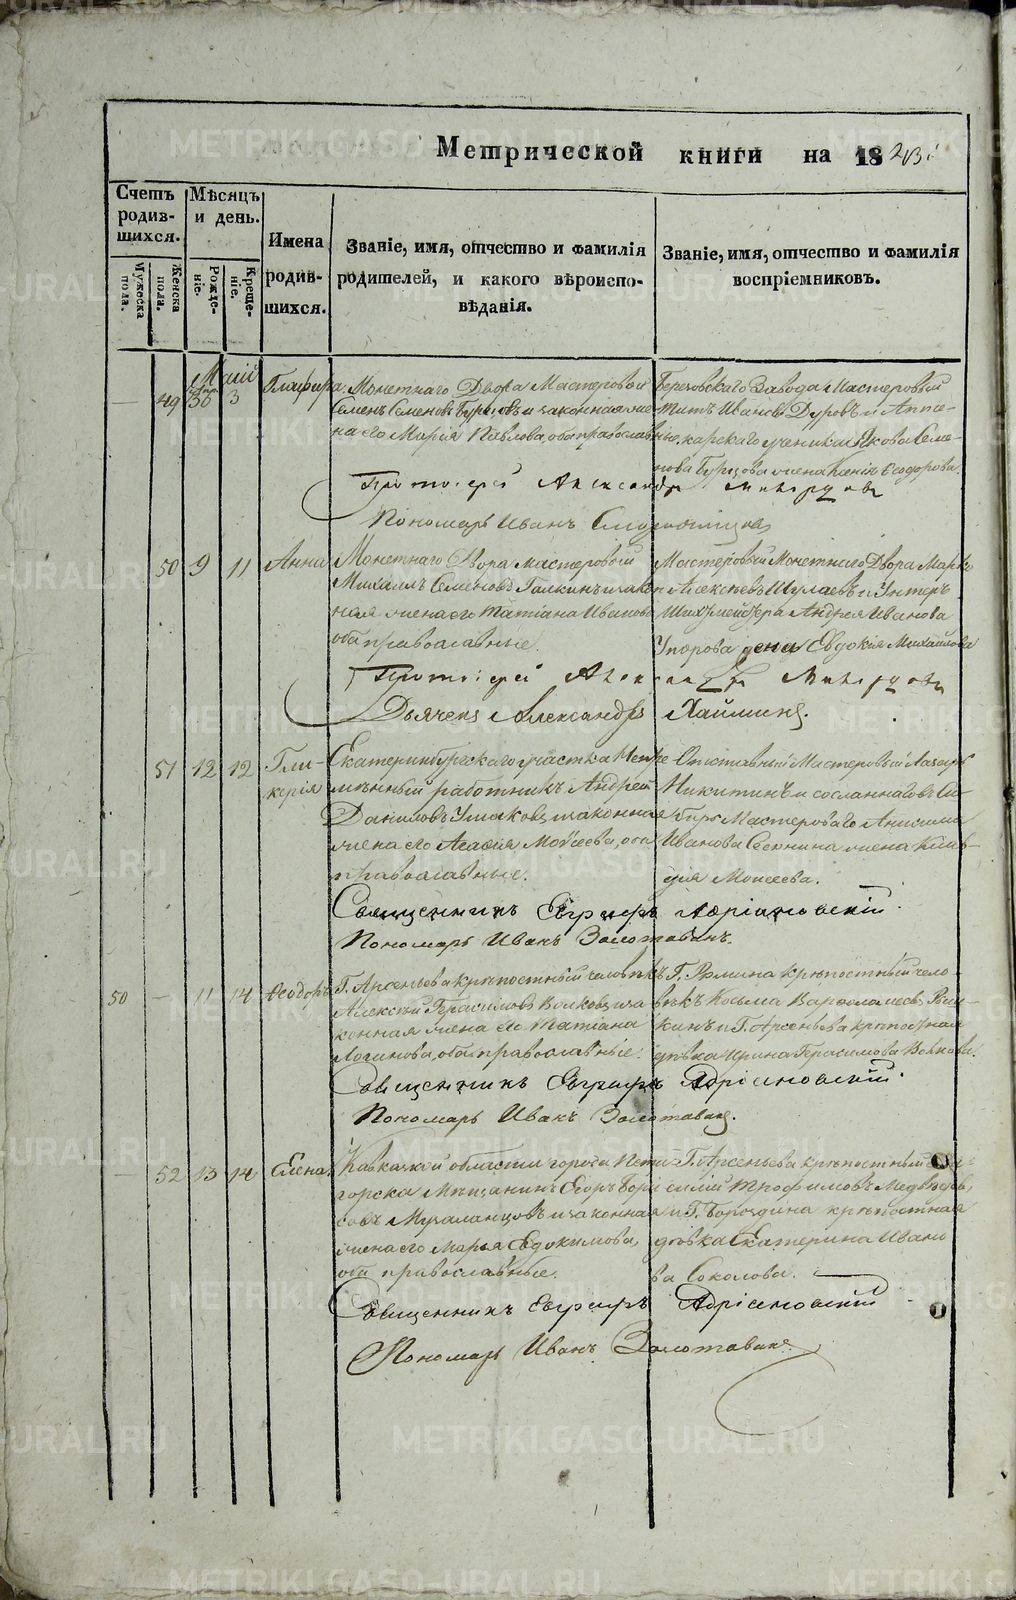 Метрической книги на 18
Счетъ родив-шихся.
Мѣсяцъ и день.
Имена родив-шихся.
Званіе, имя, отчество и фамилія родителей, и какого вѣроиспо-вѣданія.
Званіе, имя, отчество и фамилія воспріемниковъ.
Мужеска пола.
Женска пола.
Рожде-ніе.
Креще-ніе.
Маій
49
3
Глафира
Монетнаго Двора Мастеровой
Семенъ Семеновъ и законная же-
на его Марія Павлова, оба православные.
Березовскаго Завода Мастеровый
Титъ Ивановъ Дуровъ и Апте-
карскаго ученика Якова Семе-
нова жена Ксенія Ѳеодорова.
Протоіерей Александръ
Пономарь Иванъ
50 9 11 Анна
Монетнаго Двора мастеровой
Михаилъ Семеновъ Галкинъ и закон-
ная жена его Татіана Иванова
оба православные.
Мастеровый Монетнаго Двора Марко
Алексѣевъ Шулаевъ и Унтеръ
Шихтмейстера Андрея Иванова
Упорова жена Евдокія Михайлова
Протоіерей Александръ
Дьячекъ Александръ Хаймин
51 12 12 Гли-
керія
Екатеринбургскаго участка Непре-
мѣнный работникъ Андрей
Даниловъ Ушаковъ и законная
жена его Агафія Моѵсеева, оба
православные.
Отставный Мастеровый Лазарь
Никитинъ и сосланнаго въ Си-
бирь Мастероваго Анисима
Иванова жена Клав-
дія Моисеева.
Священникъ Евграфъ Адріановскій.
Пономарь Иванъ Золотавинъ.
50 — 11 14 Ѳеодоръ
Г. Арсеньева крѣпостный человѣкъ
Алексѣй Герасимовъ Волковъ и за-
конная жена его Татіана
Логинова, оба православные.
Г. крѣпостный чело-
вѣкъ Косьма Варѳоломеевъ
и Г. Арсеньева крѣпостная
дѣвка Ирина Герасимова Волкова.
Священникъ Евграфъ Адріановскій.
Пономарь Иванъ Золотавинъ.
— 52 13 14 Елена
Кавказкой области города Пяти-
горска Мѣщанинъ Егоръ Бори-
совъ и законная
жена его Марья Евдокимова,
оба православные.
Г. Арсеньева крѣпостный
Трофимовъ Медвѣдевъ,
и Г. Бороздина крѣпостная
дѣвка Екатерина Ивано-
ва Соколова.
Священникъ Евграфъ Адріановскій
Пономарь Иванъ Золотавинъ.
METRIKI.GASO-URAL.RU